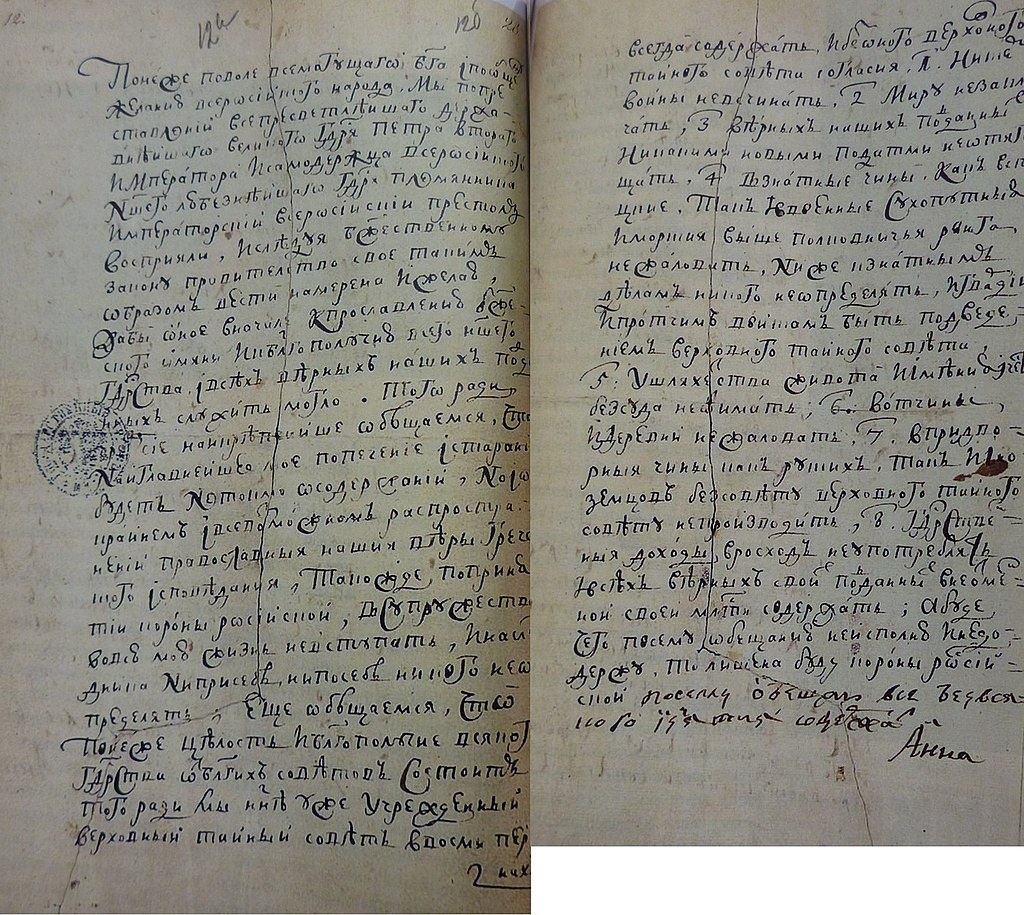 12.
12а
12б
Понеже поволе всемогущаго бга iпообще
желанию всеросиiского народа, Мы попре
ставлениi всепресветлейшаго держа-
внѣйшаго великого гдря Петра второго
Императора Исамодержца всеросиiского
Ншего любезнейшаго гдря племянника
Императорскiй всеросиiскиi престолъ
восприяли, Ислѣдуя бжественному
закону правителство свое такимъ
образомъ вести намерена Ижелаю,
дабы оное вначале Кпрославлению бже-
ского имяни Икблгополучию всего ншего
гдрства iвсѣхъ вѣрныхъ нашихъ под
нныхъ служить могло. Того ради
наикрѣпчайше обѣщаемся, что
Наiглавнейшее мое попечение iстарани
будетъ Нетокмо осодержании, Ноiо
крайнемъ iвсевозможномъ распростра-
нениi православныя нашия вѣры грече
ского iсповѣдания, Такожде, поприня
тиi короны росиiской, Всупружество
вовсю мою жизнь невступать, Инасл
дника Ниприсебѣ, нипосебѣ никого неоп
пределять, Еще обѣщаемся, что
понеже цѣлость Иблгополучие всякого
гдрства отблгихъ совѣтовъ Состоитъ
того ради Мы ннѣ уже Учрежденный
верховный тайный совѣтъ ввосми пер
нах
всегда содержать, Ибезоного верховного
тайного совѣта согласия, 1. Нискем
войны невсчинать, 2 Миру незаклю
чать, 3 вѣрныхъ нашихъ подданных
Никакими новыми податми неотяго
щать, 4 Взнатные чины, какъ вста
цкие, Такъ iввоенные Сухопутные
Иморския выше полковничья ранга
нежаловать, Ниже кзнатнымъ
дѣламъ никого неопределять, Игвардиi
Ипротчимъ войскам быть подведе-
ниемъ верховного тайного совѣта,
5. Ушляхетства живота Иимѣния Ичести
безсуда неотимать, 6. вотчины,
Идеревни нежаловать, 7. впридво-
рныя чины какъ руских, такъ Ино-
земцовъ безсовѣту верховного тайного
совѣту непроизводить, 8. Гдрствен-
ныя доходы, вросходъ неупотреблять
Iвсѣхъ вѣрныхъ своих поданных внеотме-
ной своей млсти содержать; Абуде
чего посему обещанию неисполню Инедо-
держу, То лишена буду короны росий-
ской
посему обещаю все безвся
кого содержать
Анна